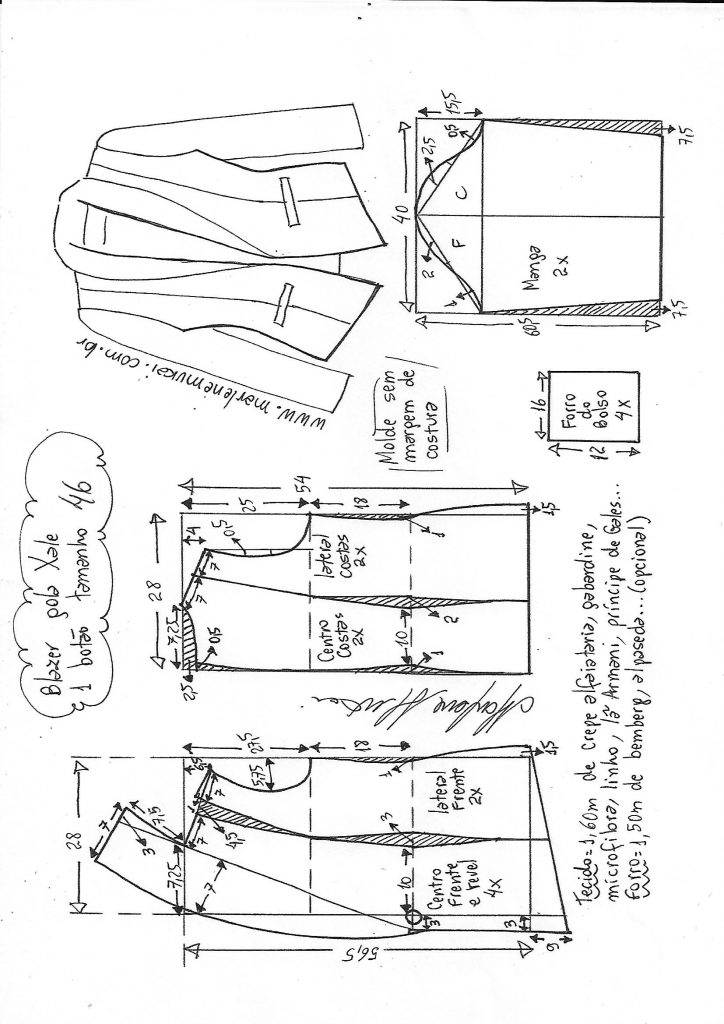 Blazer gola Xale
1 botão tamanho 46
www.marlenemukai.com.br
Molde sem
margem de
costura
28
7
7,5
3
7,25
7
4,5
7
1
7
5,75
27,5
18
1
3
10
Centro
Frente
e revel
4x
lateral
Frente
2x
3
3
56,5
9
1,5
28
7,25
25
0,5
7
7
4
0,5
25
54
18
1
lateral
costas
2x
Centro
Costas
2x
10
2
1
1,5
40
15,5
0,5
2,5
2
1
C
F
Manga
2x
60,5
7,5
7,5
16
12
Forro
do
Bolso
4x
Tecido=1,60m de crepe alfaiataria, gabardine,
microfibra, linho, lã Armani, príncipe de Gales...
Forro=1,50m de bemberg, alpaseda...(opcional)